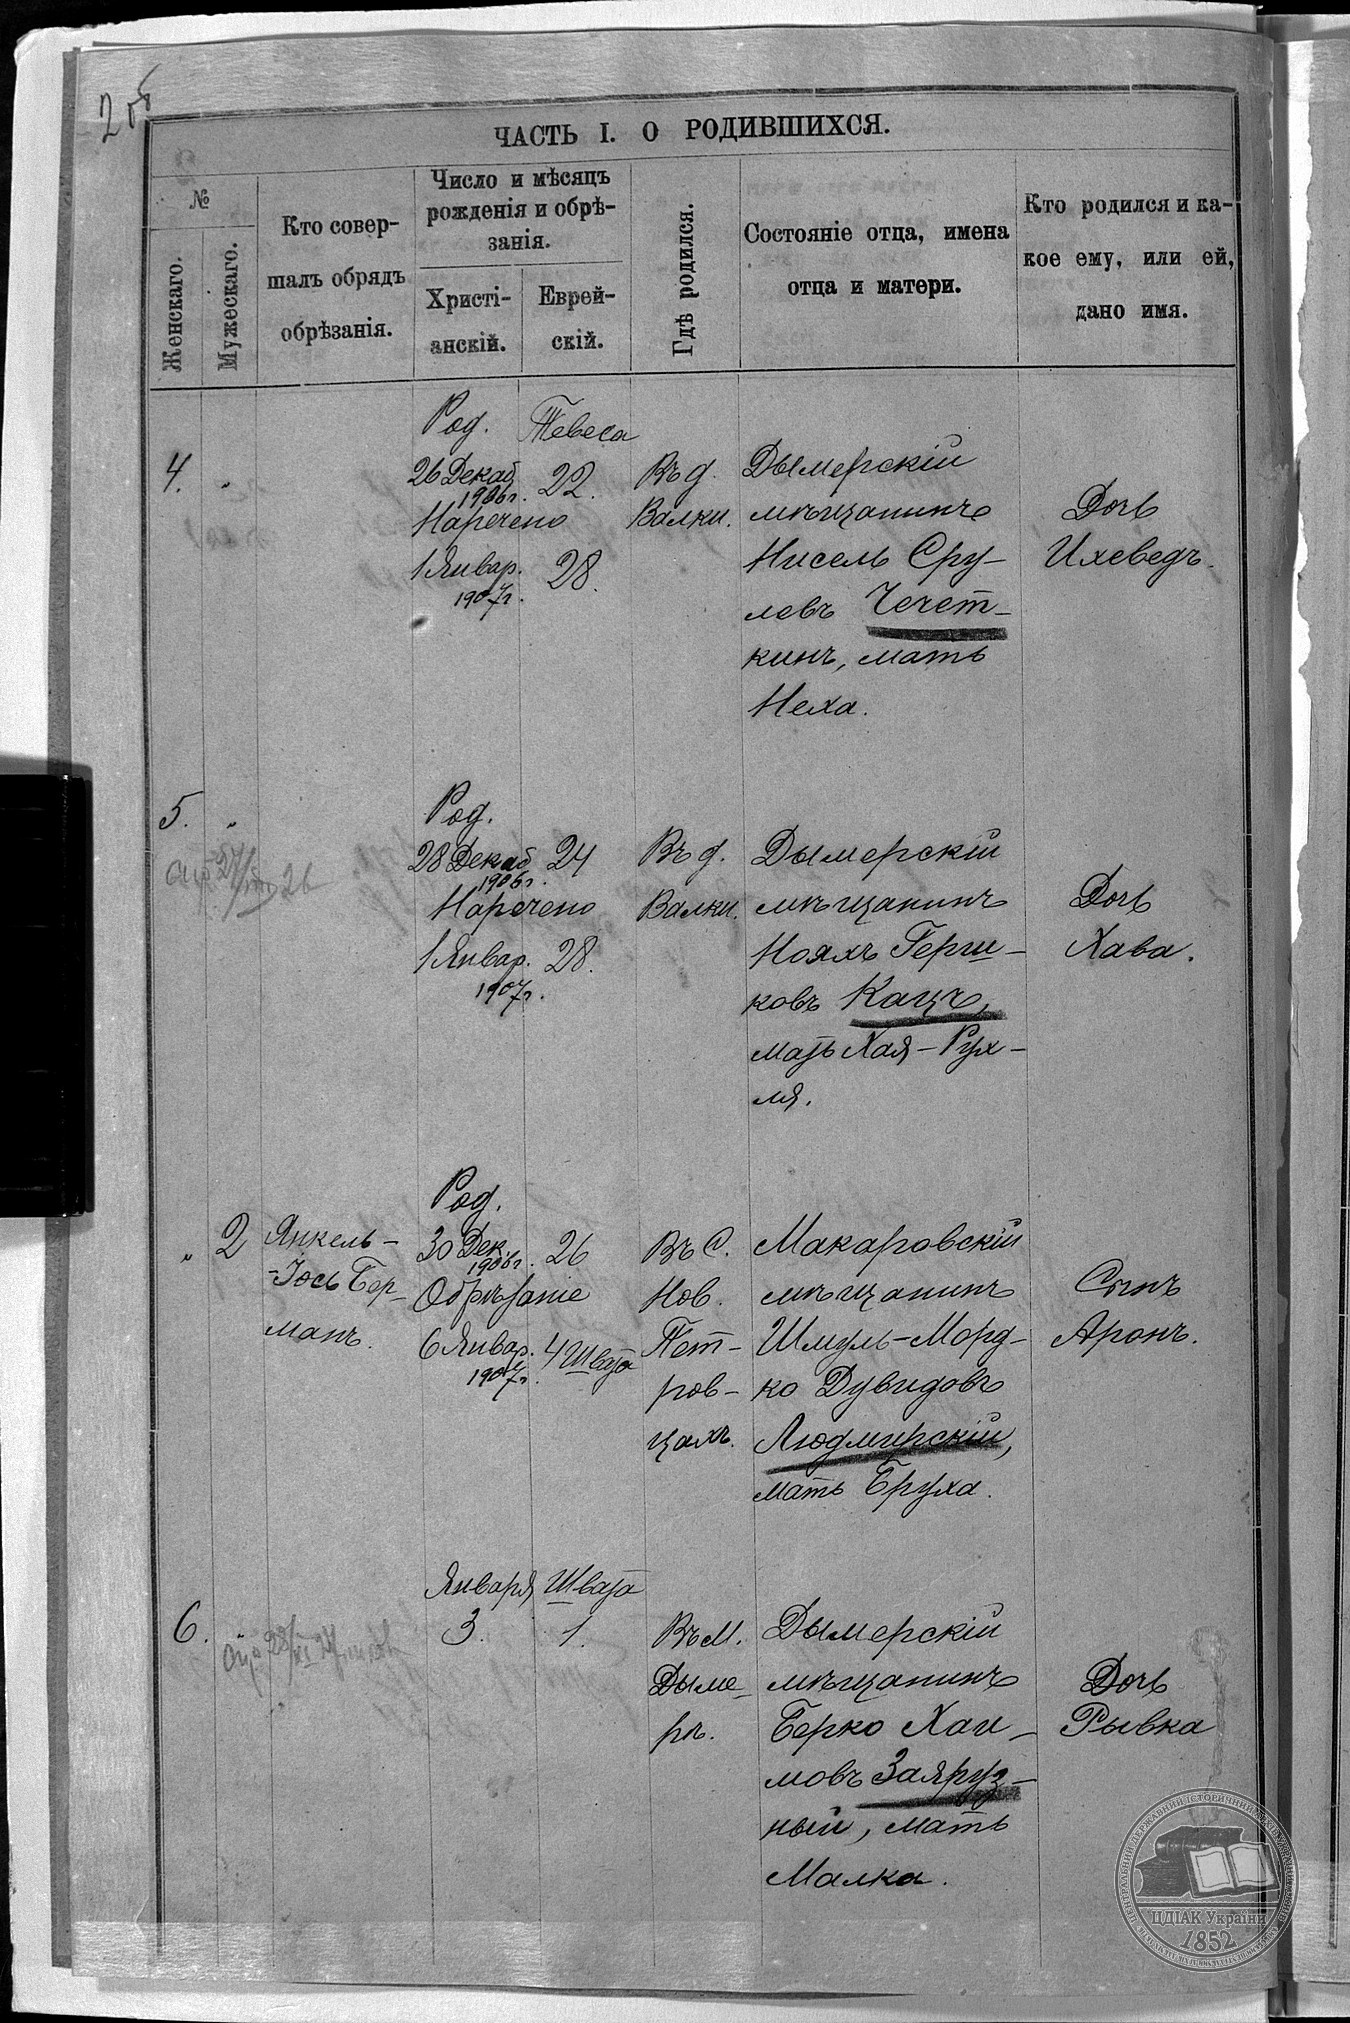 2 об
ЧАСТЬ I. О РОДИВШИХСЯ.
№
Женскаго.
Мужескаго.
Кто совер-
шалъ обрядъ
обрѣзанія.
Число и мѣсяцъ
рожденія и обрѣ-
занія.
Христі-
анскій.
Еврей-
скій.
Гдѣ родился.
Состояніе отца, имена
отца и матери.
Кто родился и ка-
кое ему, или ей,
дано имя.
4.
"
Род.
26 Декаб
1906 г.
Наречено
1 Январ.
1907 г.
Тевеса
22.
28.
Въ д.
Валки.
Дымерскій
мѣщанинъ
Нисель Сру-
левъ Чечет-
кинъ, мать
Неха.
Дочь
Ихеведъ.
5.
"
Род.
28 Декаб
1906 г.
Наречено
1 Январ.
1907 г.
24
28.
Въ д.
Валки.
Дымерскій
мѣщанинъ
Нояхъ Герш-
ковъ Кацъ,
мать Хая-Рух-
ля.
Дочь
Хава.
"
2
Янкель-
-Іось Бер-
манъ.
Род.
30 Дек.
1906 г.
Обрѣзаніе
6 Январ.
1907 г.
26
4 Швата
Въ с.
Нов.
Пет-
ров-
цахъ.
Макаровскій
мѣщанинъ
Шмуль-Морд-
ко Дувидовъ
Людмирскій,
мать Бруха.
Сынъ
Аронъ.
6.
"
Января
3.
Швата
1.
Въ м.
Дыме-
рѣ.
Дымерскій
мѣщанинъ
Берко Хаи-
мовъ Заяруз-
ный, мать
Малка.
Дочь
Рывка
ЦДІАК України
1852